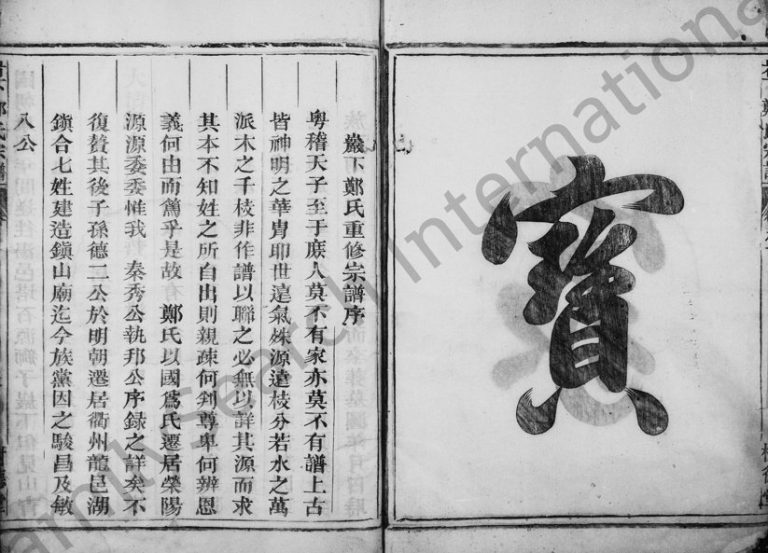 寶
巖下鄭氏重修宗譜序
粵稽天子至于庶人莫不有家亦莫不有譜上古
皆神明之華冑耶世遠氣殊源遠枝分若水之萬
派木之千枝非作譜以聯之必無以詳其源而求
其本不知姓之所自出則親疎何判尊卑何辨恩
義何由而篤乎是故 鄭氏以國爲氏遷居榮陽
源源委委惟我 秦秀公執邦公序録之詳矣不
復贅其後子孫德二公於明朝遷居衢州龍邑湖
鎭合七姓建造鎭山廟迄今族黨因之駿昌及敏
八公
FamilySearch International